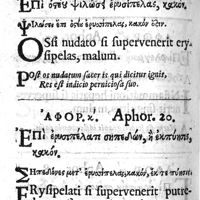 Ἐπὶ ὀστέου ψιλώσει ἐρυσίπελας, κακόν.
ἐρυσίπελας, κακόν
Ossi nudato si supervenerit ery-
sipelas, malum.
Post os nudatum sacer is qui dicitur ignis,
Res est indicio perniciosa suo.
ΑΦΟΡ. κ. Aphor. 20.
Ἐπὶ ἐρυσιπέλατι σηπεδὼν, ἢ ἐκπύησις,
κακόν.
ἐρυσίπελας, κακόν,
Erysipelati si supervenerit putre-